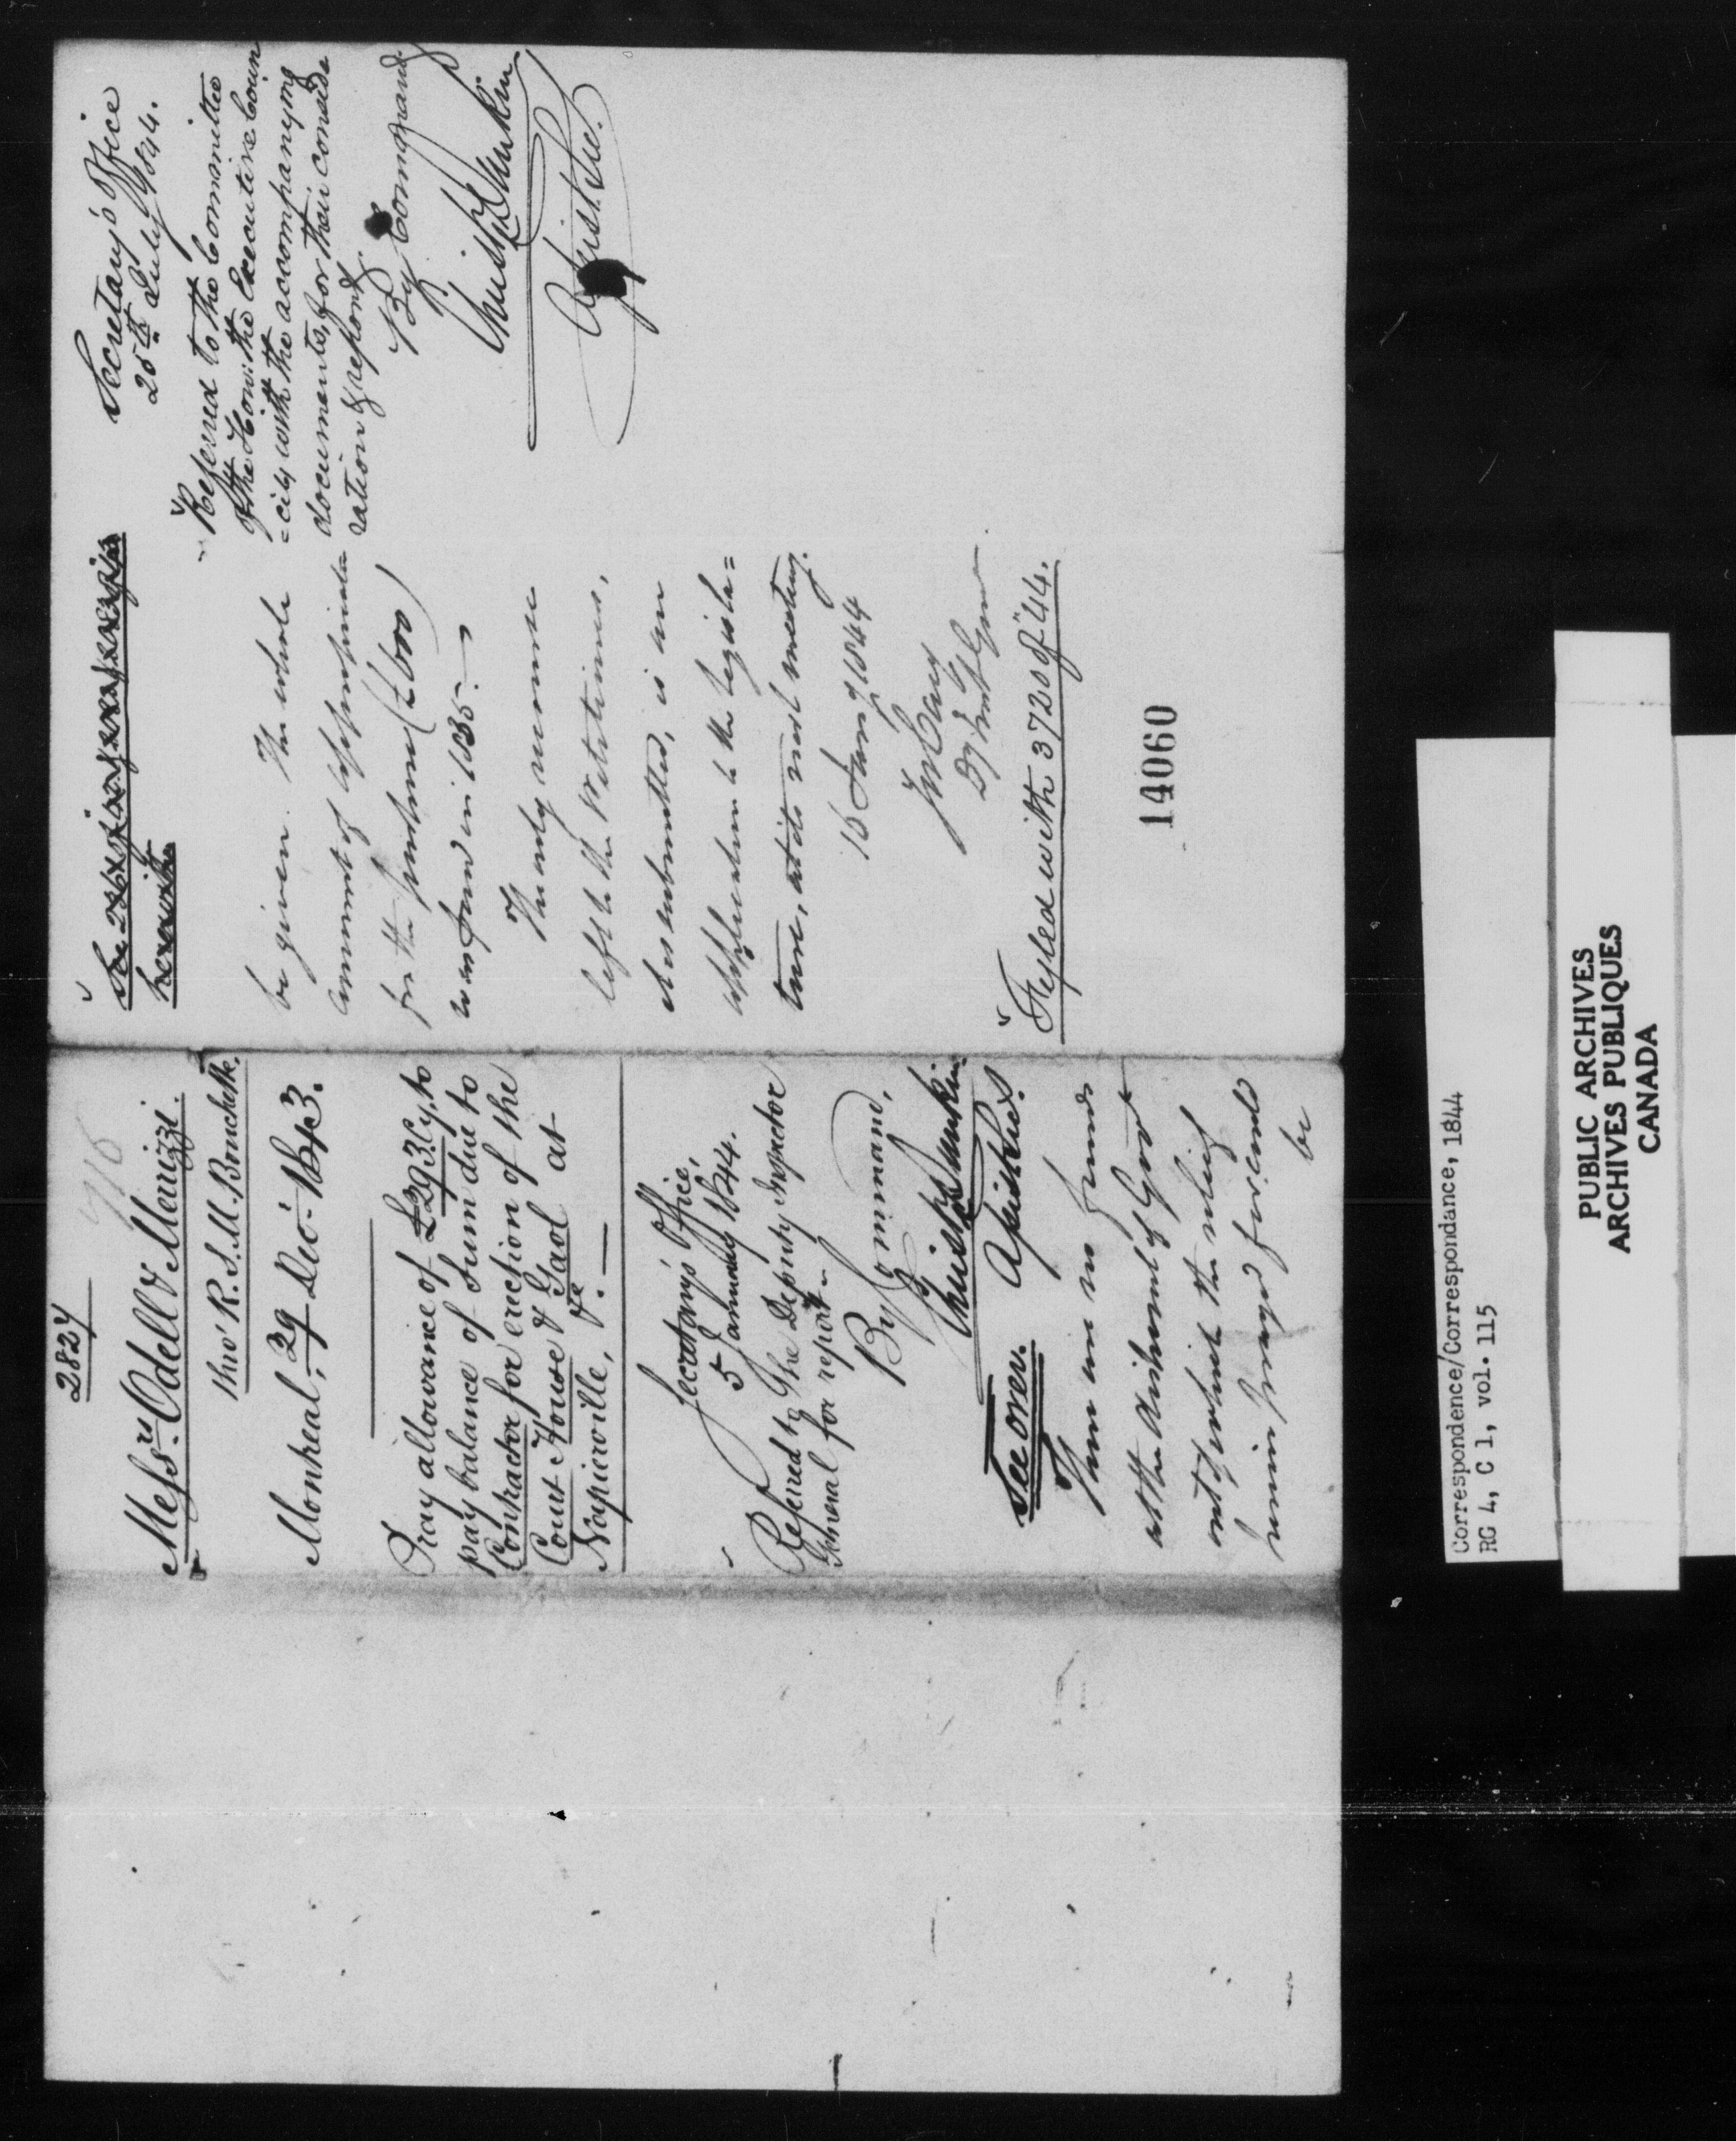 2827
Messrs. Odell & Merrizzi.
thro' R. S. M. Bouchette.
Monreal, 29 Dec. 1843.
Pray allowance of £293. Cy, to
pay balance of sum due to
Contractor for erection of the
Court House & Gaol at
Napierville, &c. —
Secretary's Office,
5 January 1844.
Referred to the Deputy Inspector
General for report
By Command,
See over.
There are no funds
at the disposal of Govt
out of which the relief
herein prayed for could
be
be given. The whole
amount of appropriation
for the purpose (£600)
was paid in 1835. —
The only recourse
left to the Petitioners,
it is submitted, is an
application to the Legisla=
ture, at its next meeting.
16 Jany 1844
Jos Cary
Dy Insp Genl
Fyled with 3720 of '44.
14060
Secretary's Office
25th July 1844.
Referred to the Committee
of the Hon: the Executive Coun
=cil, with the accompanying
documents, for their conside
ration & report.
By Command
Correspondence/Correspondance, 1844
RG 4, C 1, vol. 115
PUBLIC ARCHIVES
ARCHIVES PUBLIQUES
CANADA